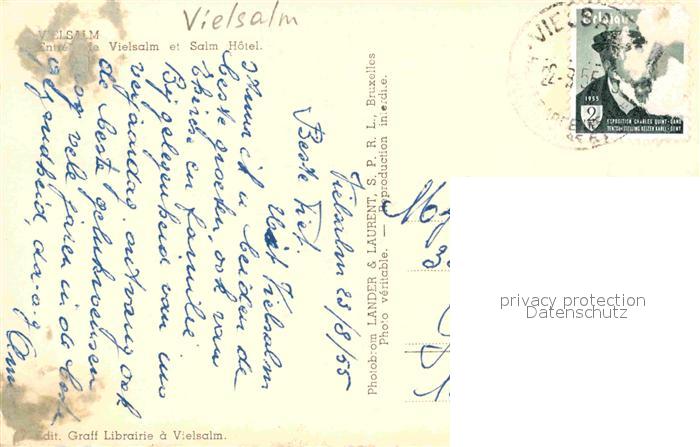 Vielsalm
VIELSALM
Entrée de Vielsalm et Salm Hôtel.
Vielsalm 23/8/55
Beste Piet.
Uit Vielsalm
stuur ik u beiden de
beste groeten, ook van
en familie
Bij gelegenheid van uw
verjaardag ontvang ook
de beste gelukwensen
nog vele jaren in de beste
gezondheid, da-a-g
Photobrom LANDER & LAURENT, S. P. R. L., Bruxelles
Photo véritable. — Reproduction interdite.
Edit. Graff Librairie à Vielsalm.
VIELSA
Belgique
1955
2
EXPOSITION CHARLES QUINT - GAND
TENTOONSTELLING KEIZER KAREL - GENT
privacy protection
Datenschutz